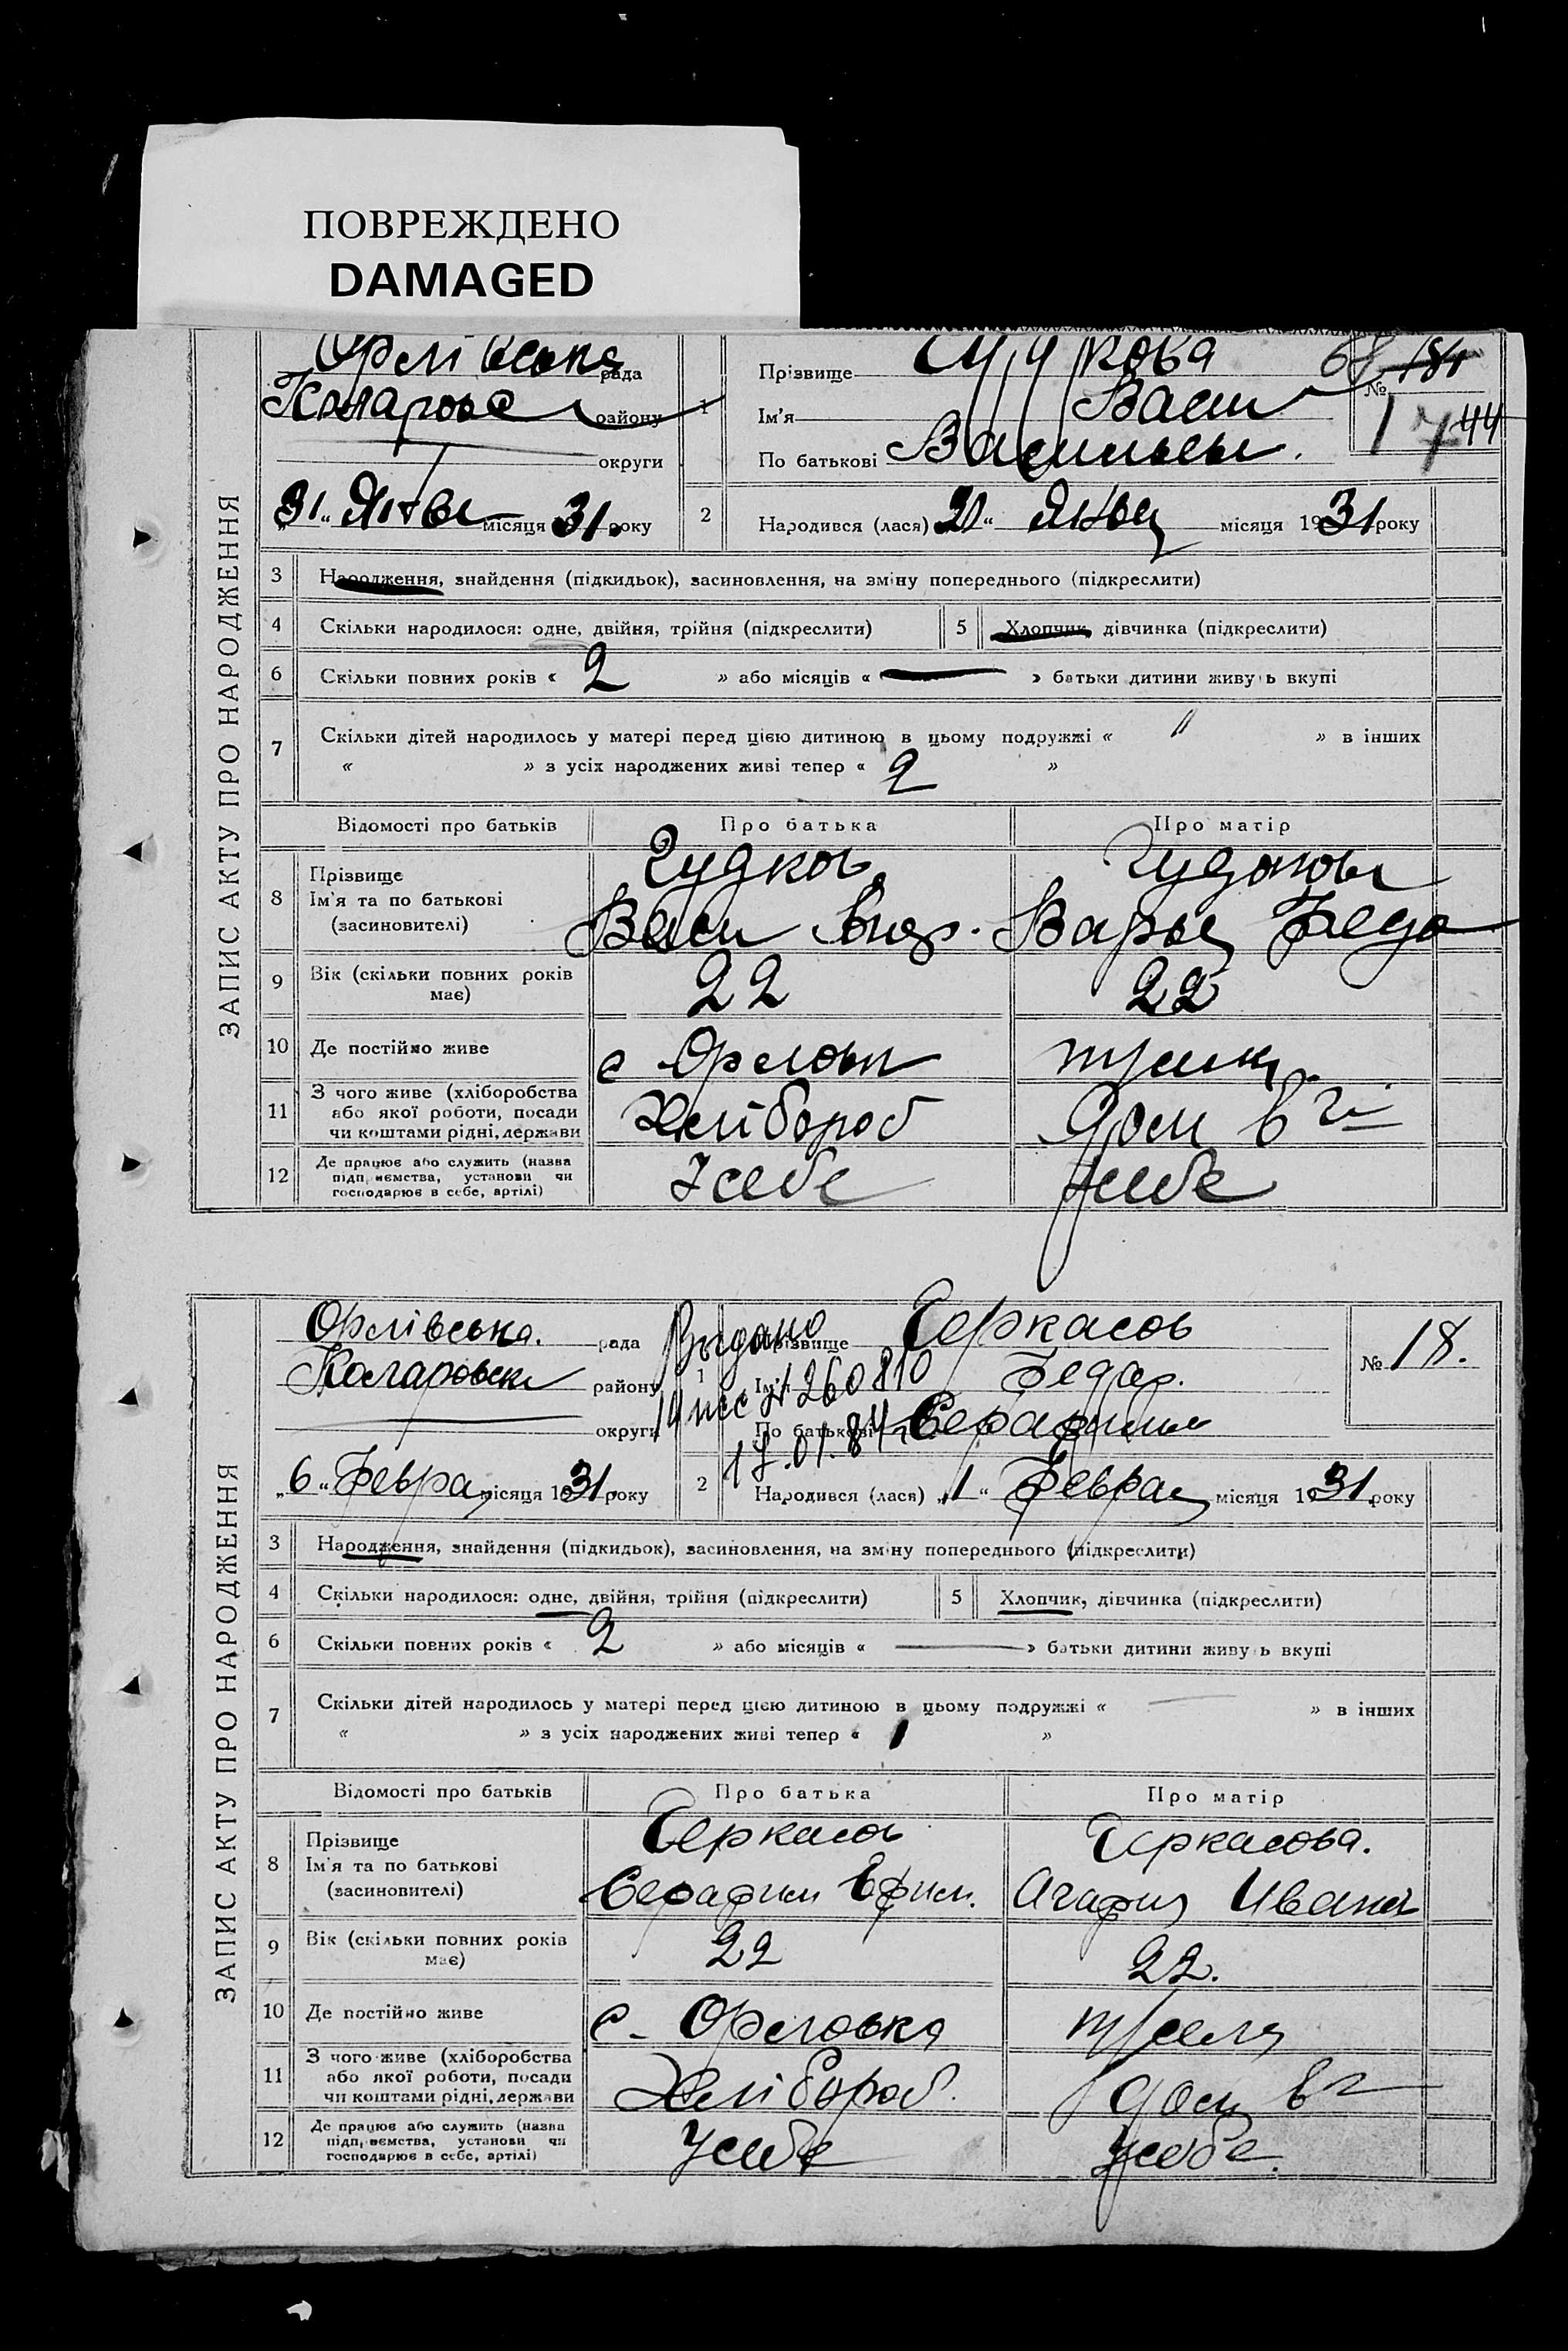 ПОВРЕЖДЕНО
DAMAGED
ЗАПИС АКТУ ПРО НАРОДЖЕННЯ
Орлівська рада
району
округи
31 " Янва місяця 31. року
1 Прізвище
Ім'я Васи
По батькові Васильевн.
№ 17
68
44
2 Народився (лася) " Янва місяця 1931 року
3 Народження, знайдення (підкидьок), засиновлення, на зміну попереднього (підкреслити)
4 Скільки народилося: одне, двійня, трійня (підкреслити) 5 Хлопчик, дівчинка (підкреслити)
6 Скільки повних років « 2 » або місяців « — » батьки дитини живуть вкупі
7 Скільки дітей народилось у матері перед цією дитиною в цьому подружжі « " » в інших
« » з усіх народжених живі тепер « 2 »
Відомості про батьків Про батька Про матір
8 Прізвище
Ім'я та по батькові
(засиновителі)
Васи Андр. Варва Федо
9 Вік (скільки повних років має) 22 22
10 Де постійно живе с Орловк
11 З чого живе (хліборобства або якої роботи, посади чи коштами рідні, держави Хлібороб дом в г
12 Де працює або служить (назва підприємства, установи чи господарює в себе, артілі) У себе У себе
ЗАПИС АКТУ ПРО НАРОДЖЕННЯ
Орлівська. рада
Коларовск району
округи
„6" Февра місяця 1931. року
Выдано
260810
17.01.84
1 Прізвище Черкасов
Ім'я Федор.
По батькові Серафим
№ 18.
2 Народився (лася) „1" Февра місяця 1931. року
3 Народження, знайдення (підкидьок), засиновлення, на зміну попереднього (підкреслити)
4 Скільки народилося: одне, двійня, трійня (підкреслити) 5 Хлопчик, дівчинка (підкреслити)
6 Скільки повних років « 2 » або місяців « — » батьки дитини живуть вкупі
7 Скільки дітей народилось у матері перед цією дитиною в цьому подружжі « — » в інших
« » з усіх народжених живі тепер « 1 »
Відомості про батьків Про батька Про матір
8 Прізвище Черкасов Черкасова.
Ім'я та по батькові Серафим Ефим. Агафия Иван
(засиновителі)
9 Вік (скільки повних років має) 22 22.
10 Де постійно живе с. Орловка
11 З чого живе (хліборобства або якої роботи, посади чи коштами рідні, держави Хлібороб. дом в г
12 Де працює або служить (назва підприємства, установи чи господарює в себе, артілі) У себе У себе.